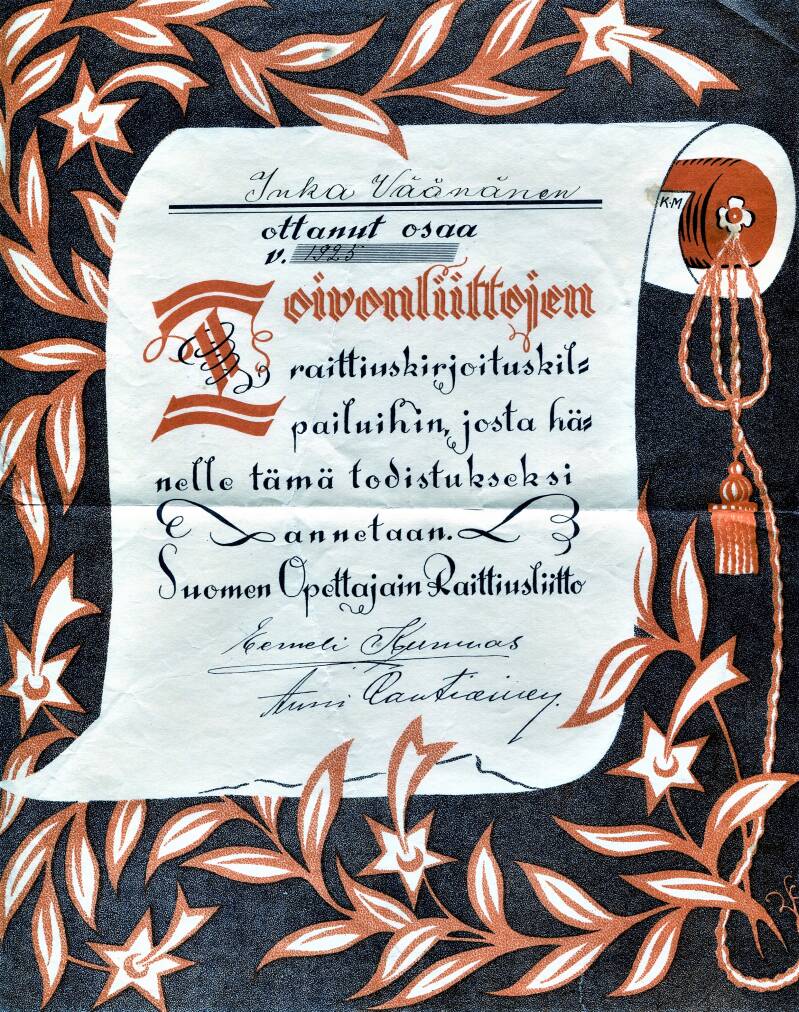 Inka Väänänen
ottanut osaa
v. 1925
K·M.
Toivonliittojen
raittiuskirjoituskil=
pailuihin, josta hä=
nelle tämä todistukseksi
annetaan.
Suomen Opettajain Raittiusliitto
Eemeli
Anni Rautiainen.